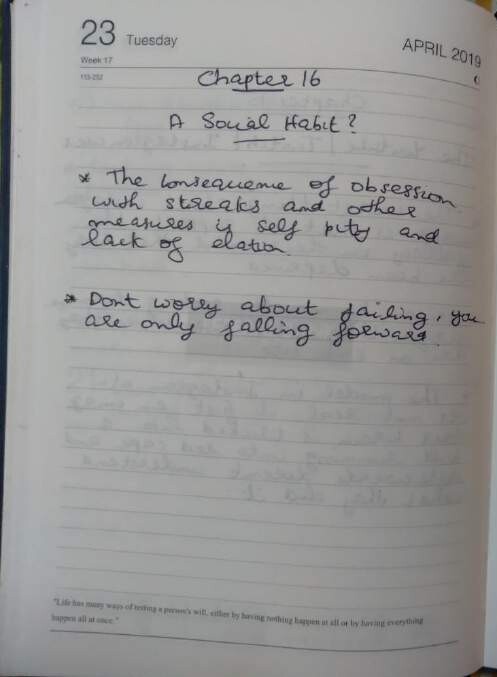 23 Tuesday
APRIL 2019
Week 17
113-252
Chapter 16
A Social Habit?
* The consequence of obsession
with streaks and other
measures is self pity and
lack of elation.
* Dont worry about failing, you
are only falling forward.
"Life has many ways of testing a person's will, either by having nothing happen at all or by having everything
happen all at once."